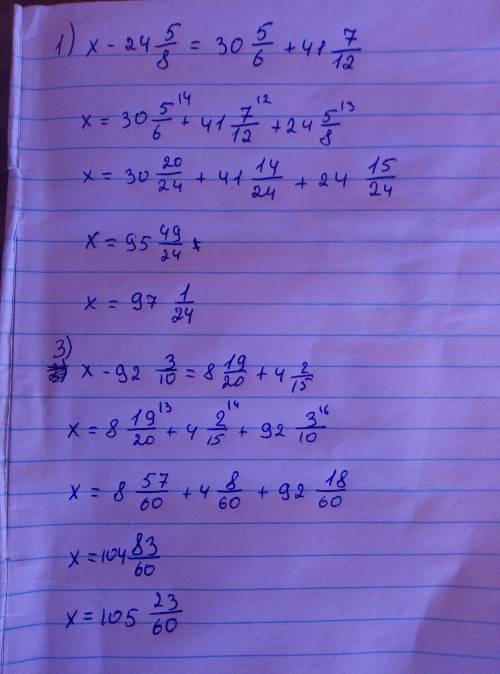 1) x - 24 5/8 = 30 5/6 + 41 7/12
x = 30 5/6 ^14 + 41 7/12 ^12 + 24 5/8 ^13
x = 30 20/24 + 41 14/24 + 24 15/24
x = 95 49/24
x = 97 1/24
3) x - 92 3/10 = 8 19/20 + 4 2/15
x = 8 19/20 ^13 + 4 2/15 ^14 + 92 3/10 ^16
x = 8 57/60 + 4 8/60 + 92 18/60
x = 104 83/60
x = 105 23/60